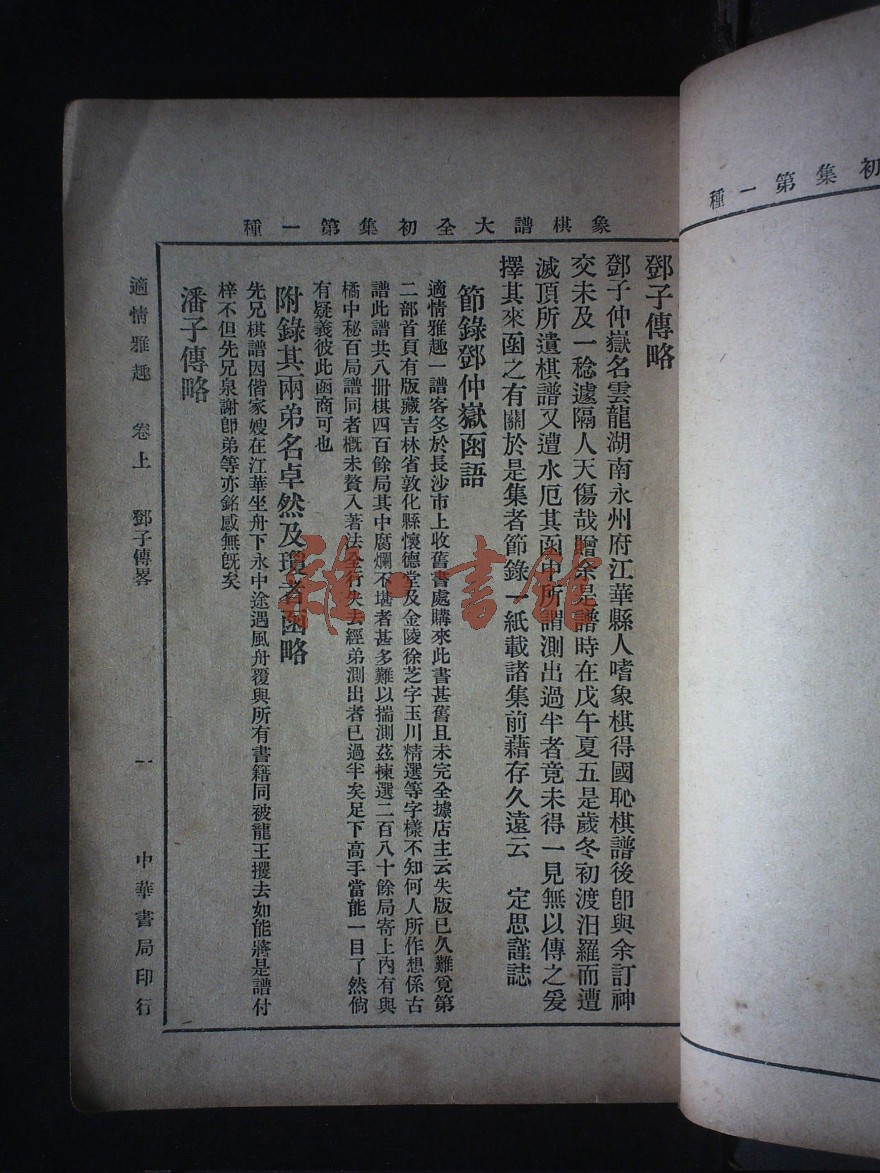 象棋譜大全初集第一種
鄧子傳略
鄧子仲嶽名雲龍湖南永州府江華縣人嗜象棋得國恥棋譜後卽與余訂神
交未及一稔遽隔人天傷哉贈余是譜時在戊午夏五是歲冬初渡汨羅而遭
滅頂所遺棋譜又遭水厄其函中所謂測出過半者竟未得一見無以傳之爰
擇其來函之有關於是集者節錄一紙載諸集前藉存久遠云　定思謹誌
節錄鄧仲嶽函語
適情雅趣一譜客冬於長沙市上收舊書處購來此書甚舊且未完全據店主云失版已久難覓第
二部首頁有版藏吉林省敦化縣懷德堂及金陵徐芝字玉川精選等字樣不知何人所作想係古
譜此譜共八冊棋四百餘局其中腐爛不堪者甚多難以揣測茲揀選二百八十餘局寄上內有與
橘中秘百局譜同者概未贅入著法全行失去經弟測出者已過半矣足下高手當能一目了然倘
有疑義彼此函商可也
附錄其兩弟名卓然及環者函略
先兄棋譜因偕家嫂在江華坐舟下永中途遇風舟覆與所有書籍同被龍王攫去如能將是譜付
梓不但先兄泉謝卽弟等亦銘感無旣矣
潘子傳略
適情雅趣　卷上　鄧子傳畧　一　中華書局印行
初集第一種
雜·書館